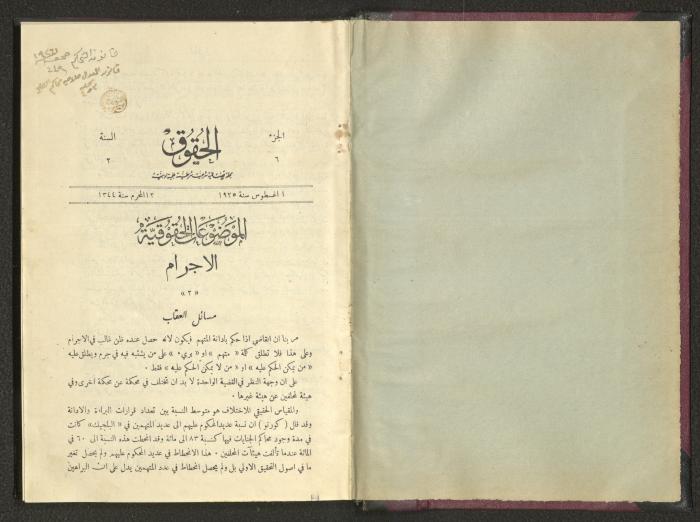 قانون الحاكم
الجزء
السنة
الحقوق
٦
٢
١ اغسطوس سنة ١٩٢٥
١٢ المحرم سنة ١٣٤٤
الموضوعات الحقوقية
الاجرام
« ٢ »
مسائل العقاب
مر بنا ان القاضي اذا حكم بادانة المتهم فيكون لانه حصل عنده ظن غالب في الاجرام
وعلى هذا فلا تطلق كلمة « متهم » او « بريء » على من يشتبه فيه في جرم ويطلق عليه
« من يمكن الحكم عليه » او « من لا يمكن الحكم عليه » فقط ·
على ان وجهة النظر في القضية الواحدة لا بد ان تختلف في محكمة عن محكمة اخرى وفي
هيئة محلفين عن هيئة غيرها ·
والمقياس الحقيقي للاختلاف هو متوسط النسبة بين تعداد قرارات البراءة والادانة
وقد قال ( كورنو ) ان نسبة عديد المحكوم عليهم الى عديد المتهمين في « البلجيك » كانت
في مدة وجود محاكم الجنايات فيها كنسبة ٨٣ الى مائة وقد انحطت هذه النسبة الى ٦٠ في
المائة عندما تألفت هيئات المحلفين · هذا الانحطاط في عديد المحكوم عليهم ولم يحصل تغير
ما في اصول التحقيق الاولي بل ولم يحصل انحطاط في عدد المتهمين يدل على ان البراهين